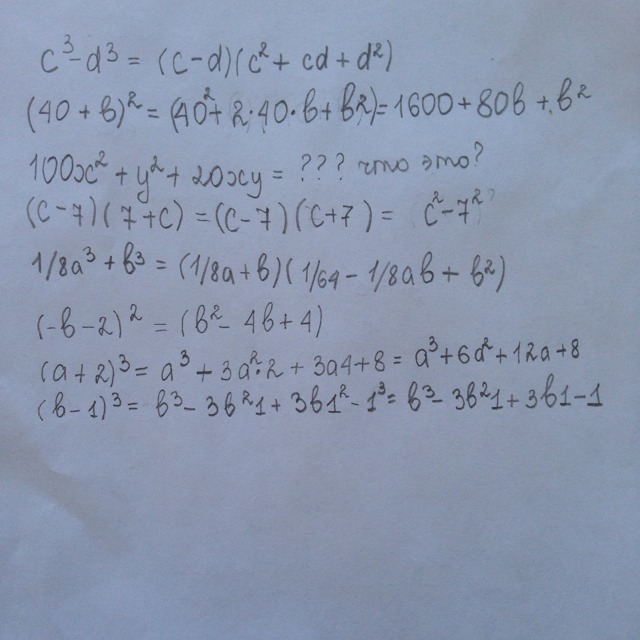 c³-d³ = (c-d)(c²+ cd + d²)
(40 + b)² = (40²+ 2·40·b + b²) = 1600 + 80b + b²
100x² + y² + 20xy = ??? что это?
(c-7)(7+c) = (c-7)(c+7) = c²-7²?
1/8a³ + b³ = (1/8a + b)(1/64 - 1/8ab + b²)
(-b-2)² = (b² - 4b + 4)
(a+2)³ = a³ + 3a²·2 + 3a4 + 8 = a³ + 6a² + 12a + 8
(b-1)³ = b³ - 3b²1 + 3b1² - 1³ = b³ - 3b²1 + 3b1 - 1